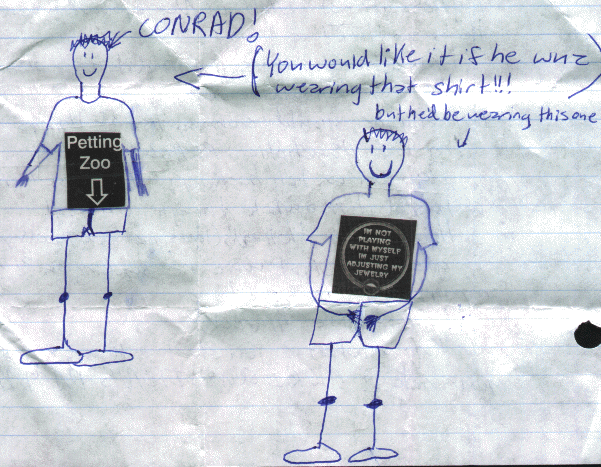 CONRAD!
(You would like it if he wuz
wearing that shirt!!!)
but he'd be wearing this one
Petting
Zoo
IM NOT
PLAYING
WITH MYSELF
IM JUST
ADJUSTING MY
JEWELRY